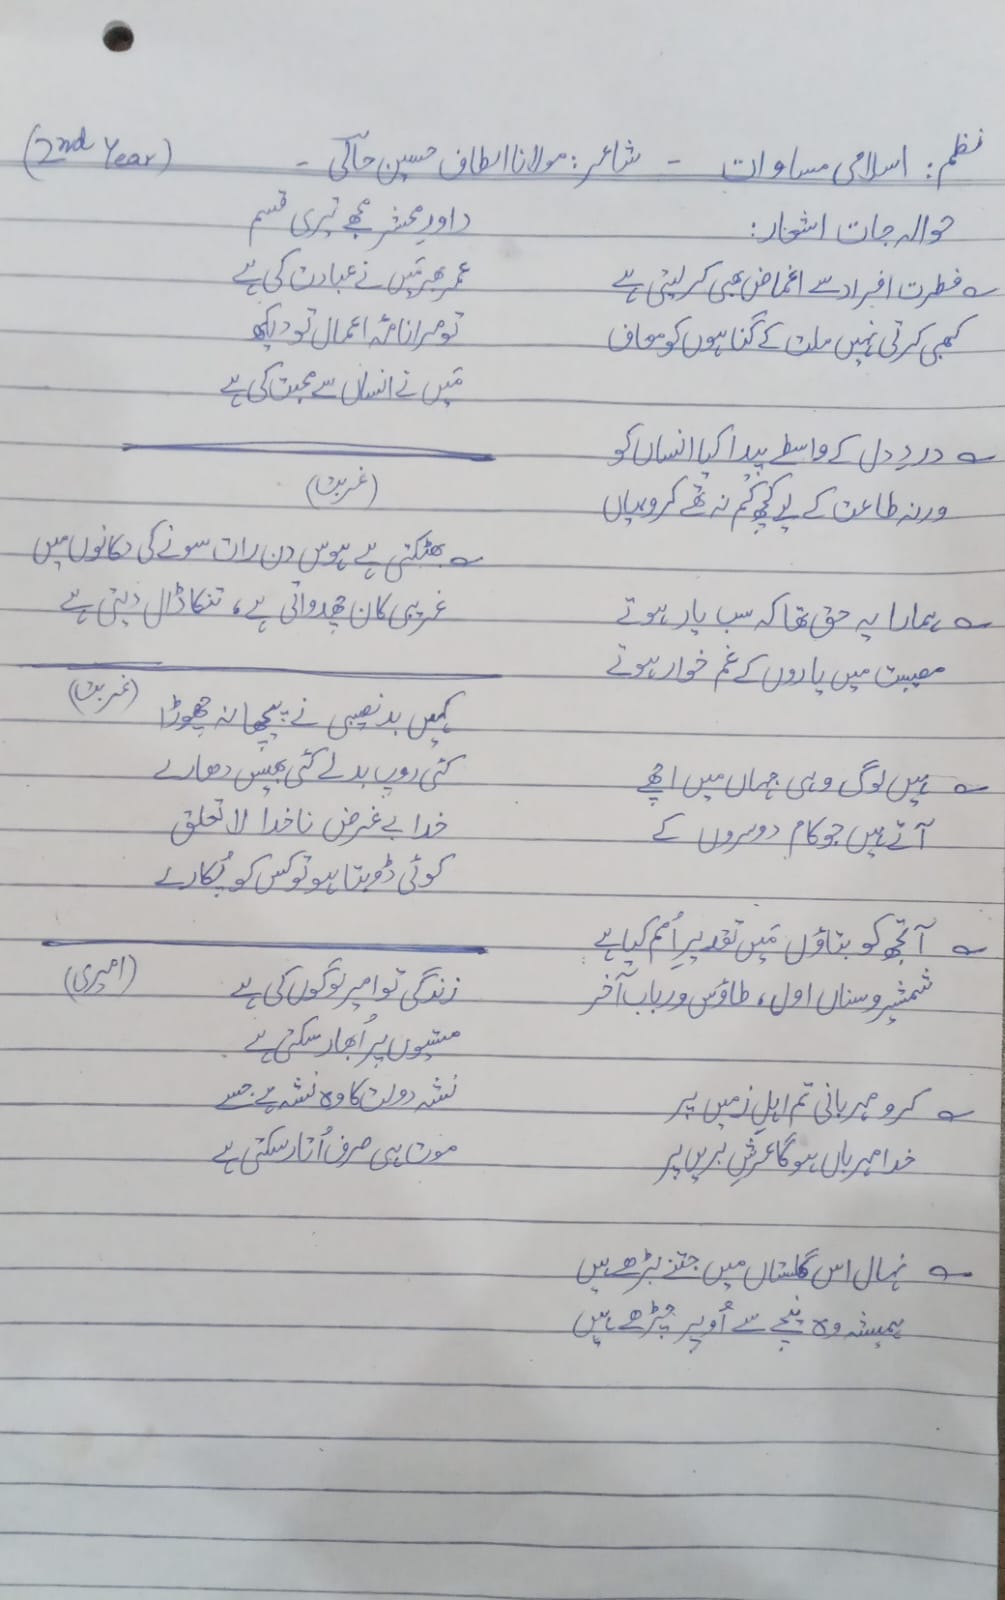 نظم: اسلامی مساوات - شاعر: مولانا الطاف حسین حالی - (2nd Year)
حوالہ جات اشعار:
فطرت افراد سے اغماض بھی کر لیتی ہے
کبھی کرتی نہیں ملت کے گناہوں کو معاف
دردِ دل کے واسطے پیدا کیا انساں کو
ورنہ طاعت کے لیے کچھ کم نہ تھے کروبیاں
ہمارا یہ حق تھا کہ سب یار ہوتے
مصیبت میں یاروں کے غم خوار ہوتے
ہیں لوگ وہی جہاں میں اچھے
آتے ہیں جو کام دوسروں کے
آ تجھ کو بتاؤں مَیں تقدیرِ اُمم کیا ہے
شمشیر و سناں اول، طاؤس و رباب آخر
کرو مہربانی تم اہلِ زمیں پر
خدا مہرباں ہو گا عرشِ بریں پر
نہال اس گلستاں میں جتنے بڑھے ہیں
ہمیشہ وہ نیچے سے اُوپر چڑھے ہیں
داورِ محشر مجھے تیری قسم
عمر بھر مَیں نے عبادت کی ہے
تو مرا نامۂ اعمال تو دیکھ
مَیں نے انساں سے محبت کی ہے
(غربت)
بھٹکتی ہے ہوس دن رات سونے کی دکانوں میں
غریبی کان چھدواتی ہے، تنکا ڈال دیتی ہے
(غربت)
کہیں بد نصیبی نے پیچھا نہ چھوڑا
کئی روپ بدلے کئی بھیس دھارے
خدا بے غرض ناخدا لا تعلق
کوئی ڈوبتا ہو تو کس کو پُکارے
(امیری)
زندگی تو امیر لوگوں کی ہے
مستیوں پر اُبھار سکتی ہے
نشہ دولت کا وہ نشہ ہے جسے
موت ہی صرف اُتار سکتی ہے